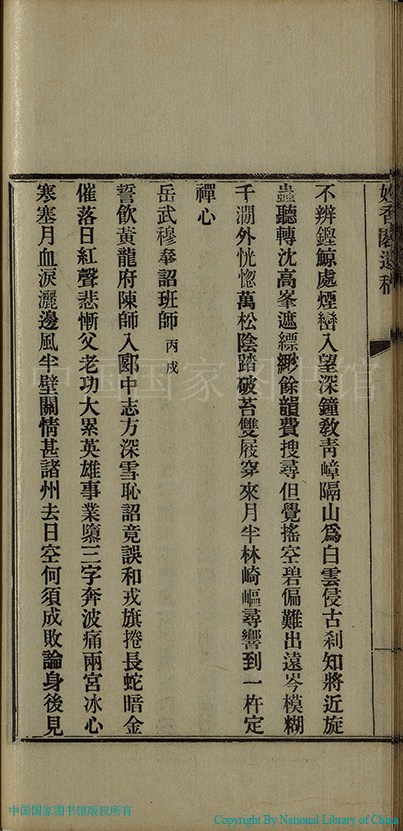 妙香閣遺稿
不辨鏗鯨處煙巒入望深鐘敎靑嶂隔山爲白雲侵古刹知將近旋
蟲聽轉沈高峯遮縹緲餘韻費搜尋但覺搖空碧偏難出遠岑模糊
千澗外恍惚萬松陰踏破苔雙屐穿來月半林崎嶇尋響到一杵定
禪心
岳武穆奉詔班師 丙戌
誓飮黃龍府陳師入郾中志方深雪恥詔竟誤和戎旗捲長蛇暗金
催落日紅聲悲慚父老功大累英雄事業隳三字奔波痛兩宮冰心
寒塞月血淚灑邊風半壁關情甚諸州去日空何須成敗論身後見
中国国家图书馆
中国国家图书馆版权所有
Copyright By National Library of China